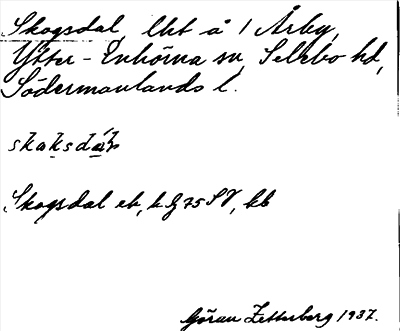 Skogsdal, lht å 1 Årby,
Ytter-Enhörna sn, Selebo hd,
Södermanlands l.
Skogsdal eb, h Lg 75 SV, kb
Göran Zetterberg 1937.